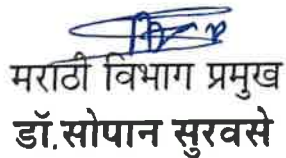 मराठी विभाग प्रमुख
डॉ.सोपान सुरवसे